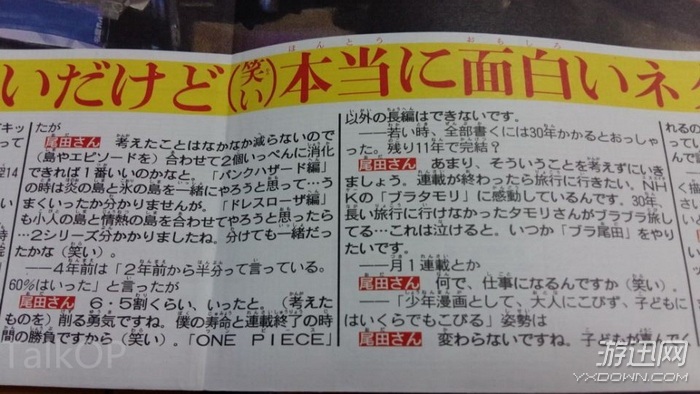 いだけど(笑い)本当に面白いネタ
たが
尾田さん 考えたことはなかなか減らないので
(島やエピソードを)合わせて2個いっぺんに消化
できれば1番いいのかなと。「パンクハザード編」
の時は炎の島と氷の島を一緒にやろうと思って…う
まくいったか分かりませんが。「ドレスローザ編」
も小人の島と情熱の島を合わせてやろうと思ったら
…2シリーズ分かかりましたね。分けても一緒だっ
たかな(笑い)。
——4年前は「2年前から半分って言っている。
60%はいった」と言ったが
尾田さん 6・5割くらい、いったと。(考えた
ものを)削る勇気ですね。僕の寿命と連載終了の時
間の勝負ですから(笑い)。「ONE PIECE」
以外の長編はできないです。
——若い時、全部書くには30年かかるとおっしゃ
った。残り11年で完結?
尾田さん あまり、そういうことを考えずにいき
ましょう。連載が終わったら旅行に行きたい。NH
Kの「ブラタモリ」に感動しているんです。30年、
長い旅行に行けなかったタモリさんがブラブラ旅し
てる…これは泣けると。いつか「ブラ尾田」をやり
たいです。
——月1連載とか
尾田さん 何で、仕事になるんですか(笑い)。
——「少年漫画として、大人にこびず、子どもに
はいくらでもこびる」姿勢は
尾田さん 変わらないですね。子どもが喜んでく
TalkOP
游迅网
YXDOWN.COM